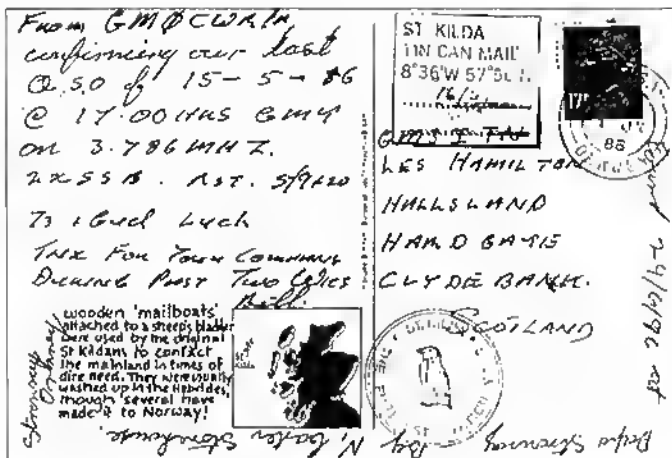 From GMØCWR/A
confirming our last
Q.S.O of 15-5-86
@ 17.00 HRS GMT
on 3.786 MHZ.
2XSSB. RST. 5/9+20
73 & Gud Luck
TNX For Your Comming
During Past Two Wks
Bill.
wooden 'mailboats'
attached to a sheep's bladder
were used by the original
St Kildans to contact
the mainland in times of
dire need. They were usually
washed up in the Hebrides,
though several have
made it to Norway!
Stronsay
Orkney
ST KILDA
TIN CAN MAIL
8°36'W 57°
16/5
17P
LES HAMILTON
HALLSLAND
HARDGATE
CLYDEBANK.
SCOTLAND
Found 24/6/86 at
Stronsay By
N. Stonehouse.